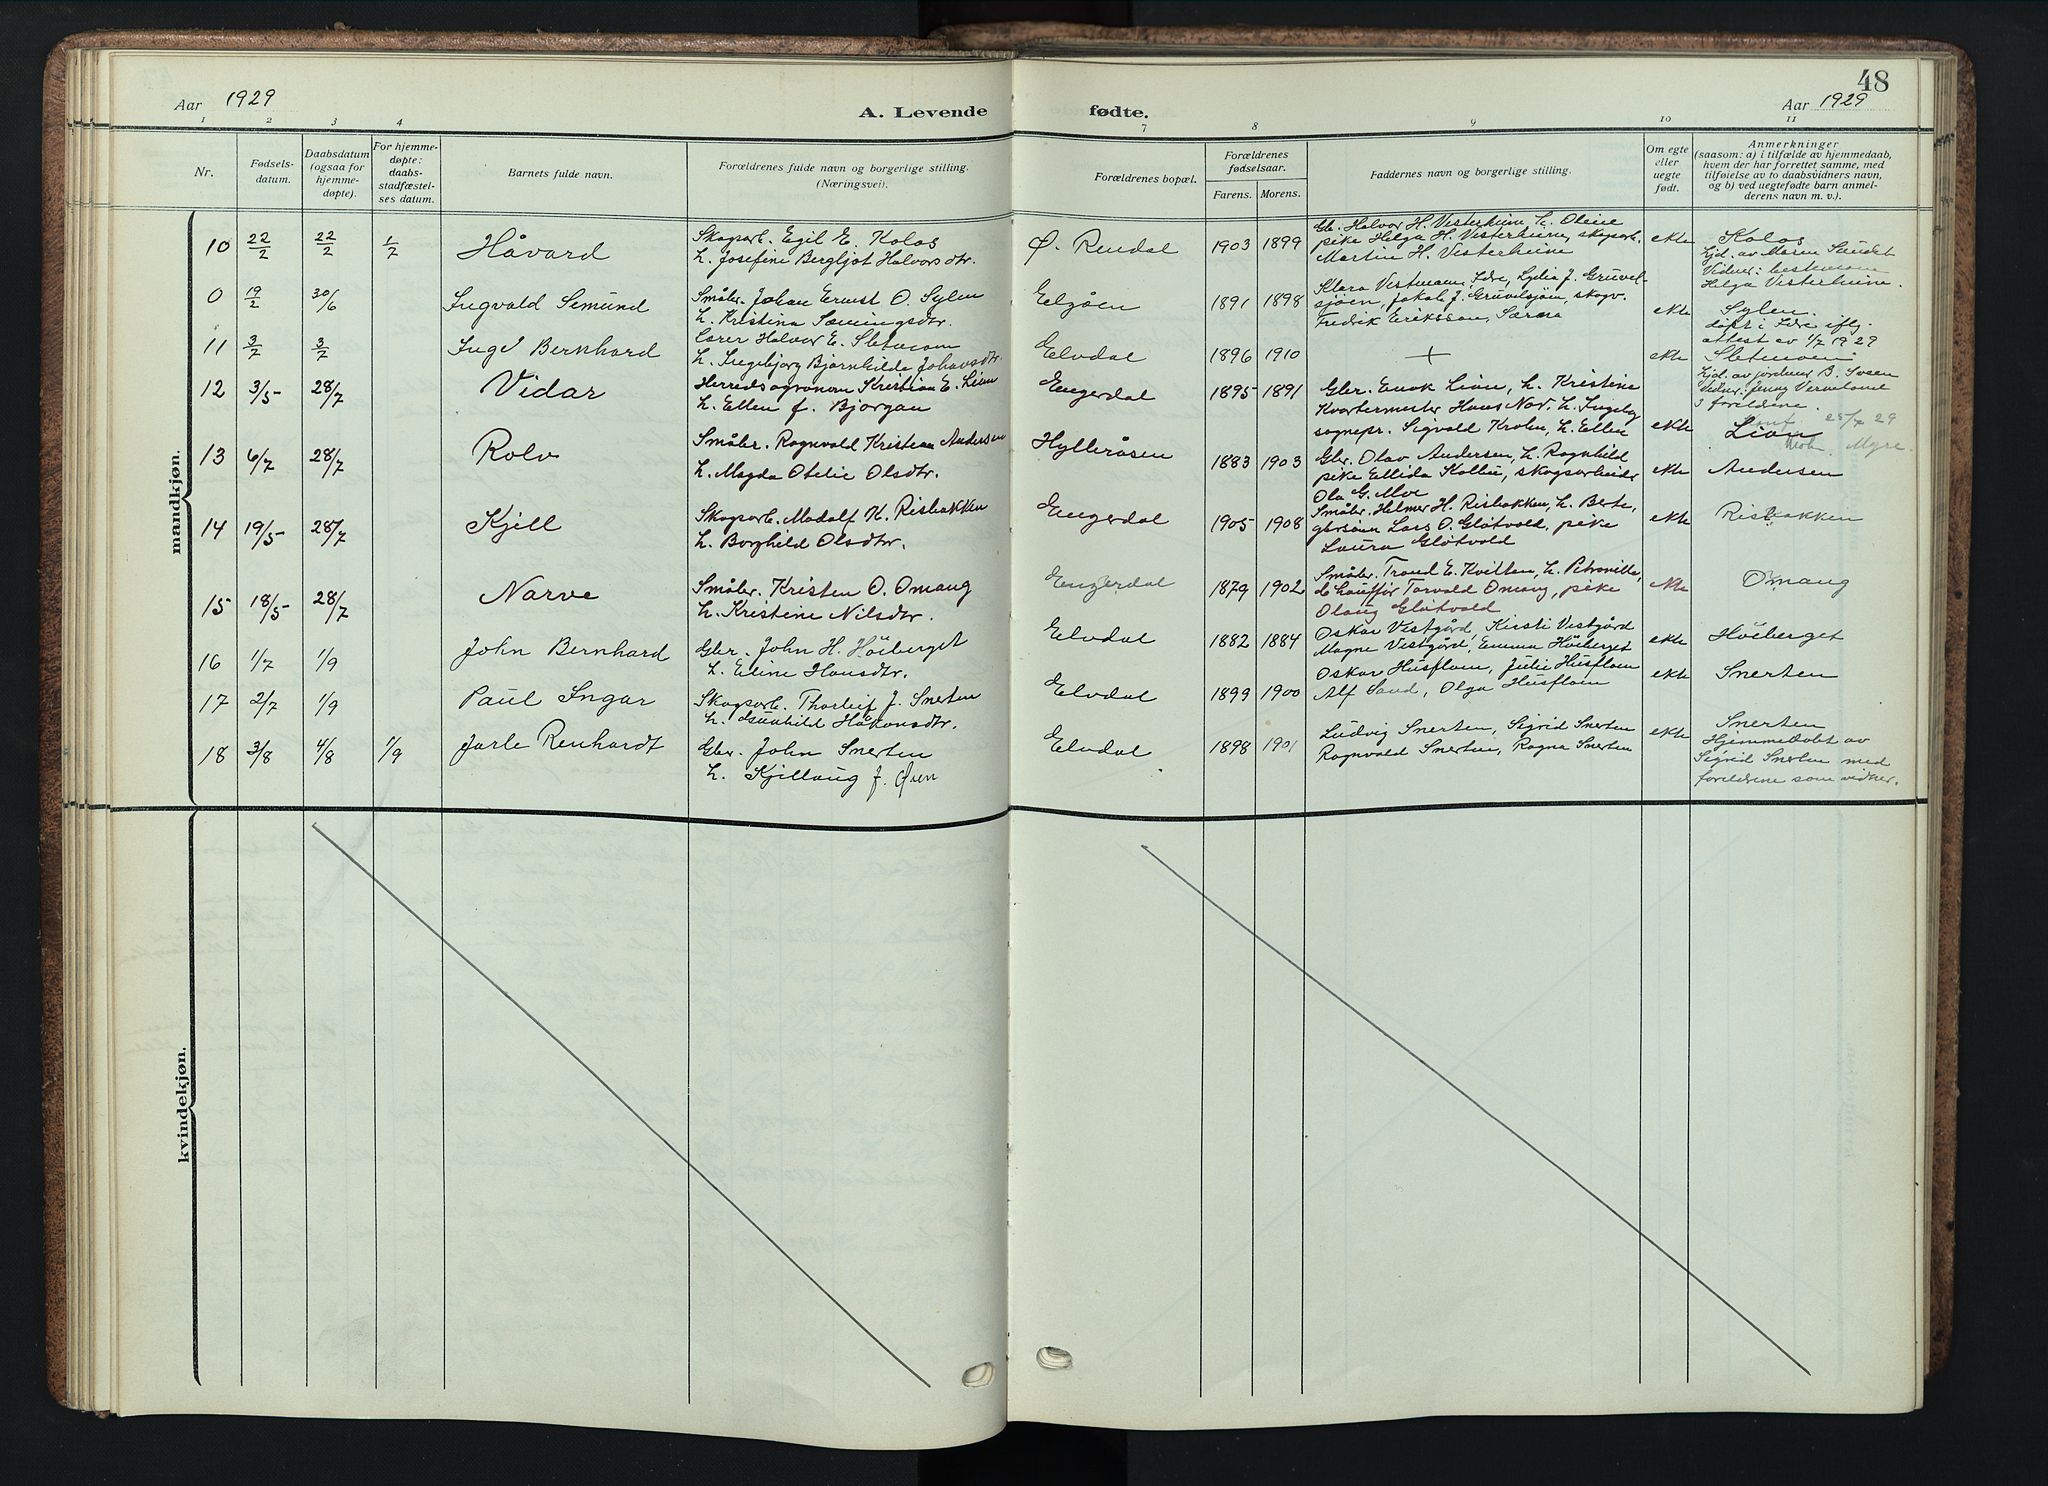 48
Aar 1929
A. Levende
fødte.
Aar 1929
1 2 3 4
7 8 9 10 11
Nr.
Fødsels-
datum.
Daabsdatum
(ogsaa for
hjemme-
døpte).
For hjemme-
døpte:
daabs-
stadfæstel-
ses datum.
Barnets fulde navn.
Forældrenes fulde navn og borgerlige stilling.
(Næringsvei).
Forældrenes bopæl.
Forældrenes
fødselsaar.
Farens. Morens.
Faddernes navn og borgerlige stilling.
Om egte
eller
uegte
født.
Anmerkninger
(saasom: a) i tilfælde av hjemmedaab,
hvem der har forrettet samme, med
tilføielse av to daabsvidners navn,
og b) ved uegtefødte barn anmel-
derens navn m. v.).
mandkjøn.
10 22/2 22/2 1/7 Håvard
Skogsarb. Egil E. Kolos
h. Josefine Bergljot Halvorsdtr.
Ø. Rendal 1903 1899
Gbr. Halvor H. Vesterheim h. Oline
pike Helga H. Vesterheim, skogsarb.
Martin H. Vesterheim
ekte
Kolos
Hjd. av Maren Sundet
Vidner: bestemom
Helga Vesterheim.
0 19/2 30/6 Ingvald Semund
Småbr. Johan Ernst O. Sylen
h. Kristina Sæmingsdtr.
Elgåen 1891 1898
Klara Vestmann, Idre, Lydia J. Gruvel-
sjøen, Jakob J. Gruvelsjøen, skogv.
Fredrik Eriksson, Särna
ekte
Sylen.
døpt i Idre iflg.
attest av 1/7 1929
11 3/7 3/7 Inge Bernhard
Halvor E. Sletmoen
h. Ingebjørg Bjørnhilda Johansdtr
Elvdal 1896 1910
+
ekte
Sletmoen
Hjd. av jordmor B. Sveen
Vidner: Jenny
3 foreldrene.
12 3/5 28/7 Vidar
Herredsagronom Kristian E. Lian
h. Ellen f. Bjørgan
Engerdal 1895 1891
Gbr. Enok Lian, h. Kristine
Kvartermester Hans Nov. h. Ingeborg
sognepr. Sigvald Krohn, h. Ellen
ekte
Lian
28/7 29
Myre.
13 6/7 28/7 Rolv
Småbr. Ragnvald Kristian Andersen
h. Magda Otelie Olsdtr.
Hylleråsen 1883 1903
Gbr. Olav Andersen, h. Ragnhild
pike Ellida Kolbu, skogsarbeider
Ola G. Moe
ekte
Andersen
14 19/5 28/7 Kjell
Skogsarb. Madolf H. Risbakken
h. Borghild Olsdtr.
Engerdal 1905 1908
Småbr. Helmer H. Risbakken, h. Berte,
gbrsøn Lars O. Gløtvold, pike
Laura Gløtvold
ekte
Risbakken
15 18/5 28/7 Narve
Småbr. Kristen O. Omang
h. Kristine Nilsdtr.
Engerdal 1879 1902
Småbr. Trond E. Kvilten, h. Petronille,
Torvald Omang, pike
Olaug Gløtvold
ekte
Omang
16 1/7 1/9 John Bernhard
Gbr. John H. Høiberget
h. Eline Hansdtr.
Elvdal 1882 1884
Oskar Vestgård, Kirsti Vestgård
Magne Vestgård, Emma Høiberget
ekte
Høiberget
17 2/7 1/9 Paul Ingar
Skogsarb. Thorleif J. Snerten
h. Gunhild Håkonsdtr.
Elvdal 1899 1900
Oskar Husfloen, Julie Husfloen
Alf Sand, Olga Husfloen
ekte
Snerten
18 3/8 4/8 1/9 Jarle Renhardt
Gbr. John Snerten
h. Kjellaug f. Øien
Elvdal 1898 1901
Ludvig Snerten, Sigrid Snerten
Ragnvald Snerten, Ragna Snerten
ekte
Snerten
Hjemmedøbt av
Sigrid Snerten med
foreldrene som vidner.
kvindekjøn.